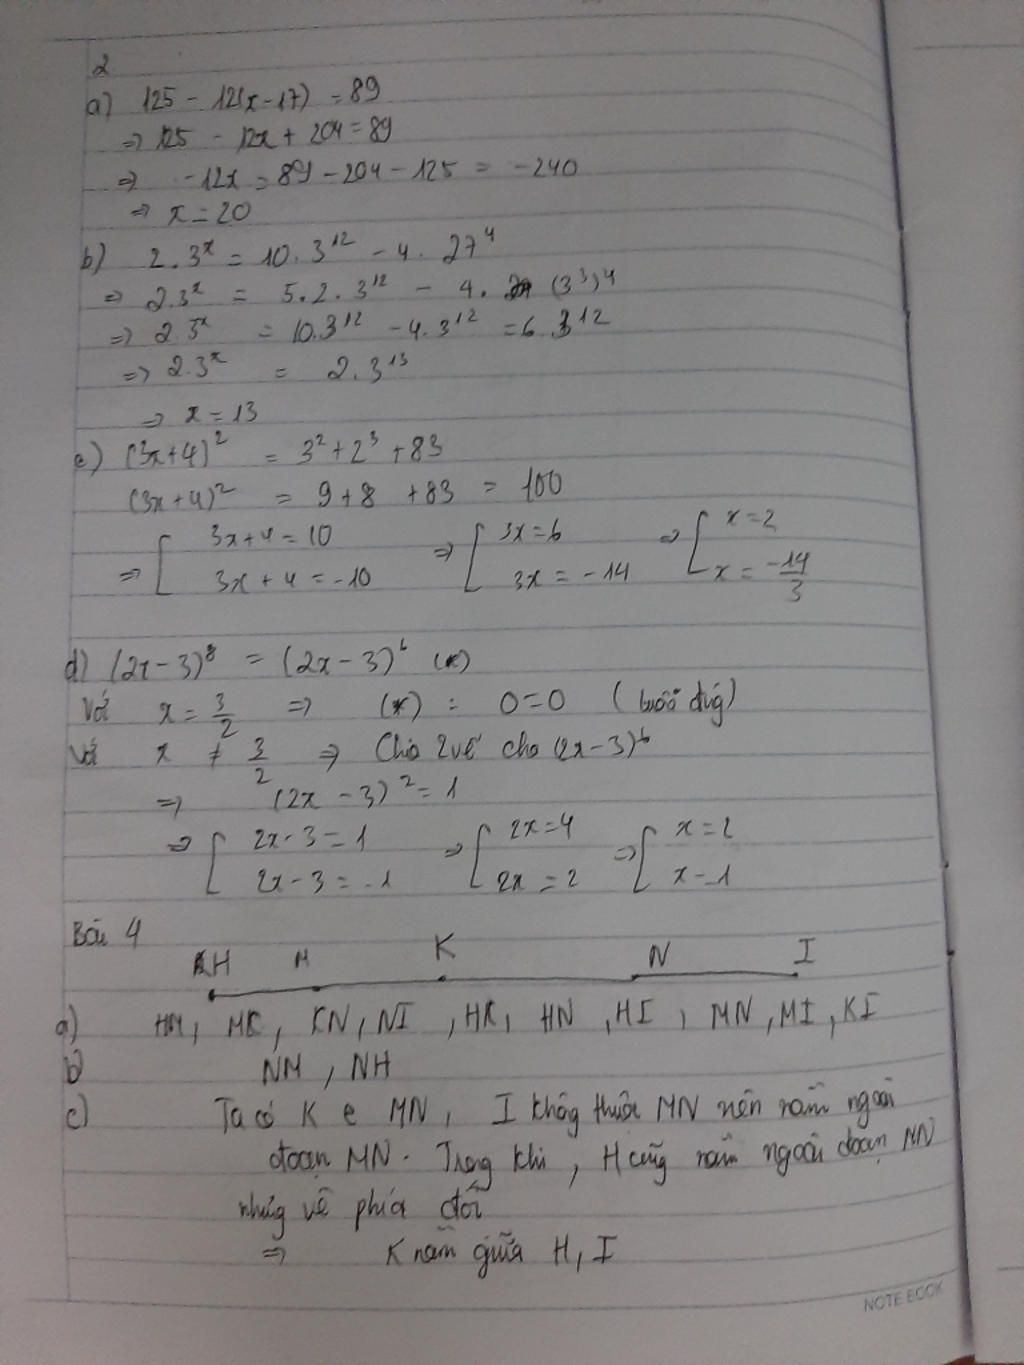 2
a) 125 - 12(x-17) = 89
=> 125 - 12x + 204 = 89
=> -12x = 89 - 204 - 125 = -240
=> x = 20
b) 2.3^x = 10.3^12 - 4.27^4
=> 2.3^x = 5.2.3^12 - 4. (3^3)^4
=> 2.3^x = 10.3^12 - 4.3^12 = 6.3^12
=> 2.3^x = 2.3^13
=> x = 13
c) (3x+4)^2 = 3^2 + 2^3 + 83
(3x+4)^2 = 9 + 8 + 83 = 100
=> [ 3x+4 = 10 => [ 3x = 6 => [ x = 2
3x+4 = -10 3x = -14 x = -14/3
d) (2x-3)^8 = (2x-3)^6 (*)
Với x = 3/2 => (*) : 0=0 (luôn đúng)
Với x ≠ 3/2 => Chia 2 vế cho (2x-3)^6
=> (2x-3)^2 = 1
=> [ 2x-3 = 1 => [ 2x = 4 => [ x = 2
2x-3 = -1 2x = 2 x = 1
Bài 4
H M K N I
a) HM, MK, KN, NI, HK, HN, HI, MN, MI, KI
b) NM, NH
c) Ta có K e MN, I không thuộc MN nên nằm ngoài
đoạn MN. Trong khi, H cũng nằm ngoài đoạn MN
nhưng về phía đối
=> K nằm giữa H, I
NOTE BOOK